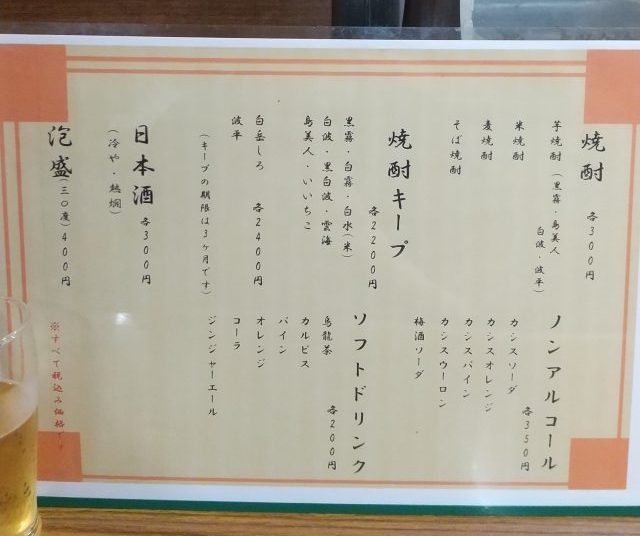 焼酎 各300円
芋焼酎(黒霧・島美人
白波・波平)
米焼酎
麦焼酎
そば焼酎
焼酎キープ
各2200円
黒霧・白霧・白水(米)
白波・黒白波・雲海
島美人・いいちこ
白岳しろ 各2400円
波平
(キープの期限は3ヶ月です)
日本酒 各300円
(冷や・熱燗)
泡盛(三〇度)400円
ノンアルコール
各350円
カシスソーダ
カシスオレンジ
カシスパイン
カシスウーロン
梅酒ソーダ
ソフトドリンク
各200円
烏龍茶
カルピス
パイン
オレンジ
コーラ
ジンジャーエール
※すべて税込み価格です